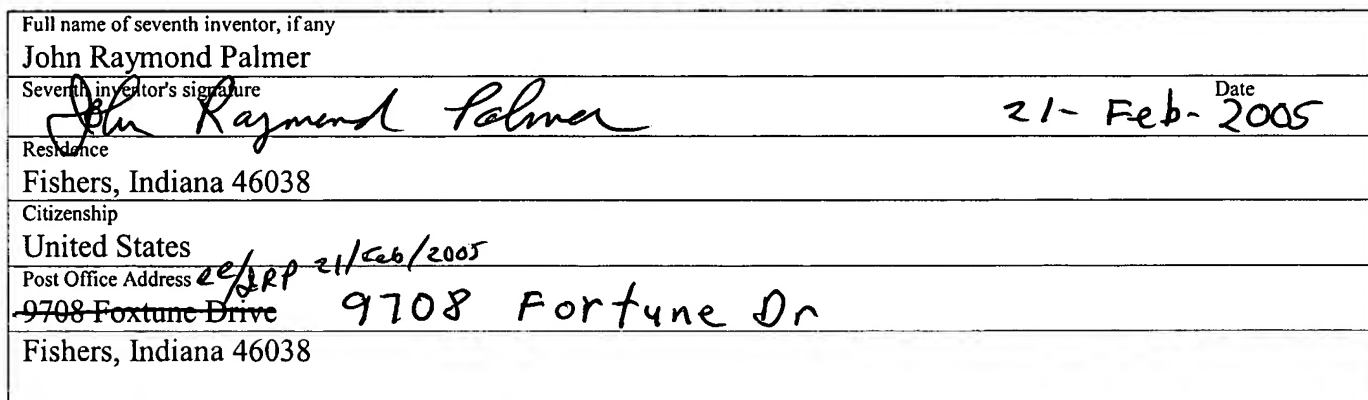 Full name of seventh inventor, if any
John Raymond Palmer
Seventh inventor's signature
John Raymond Palmer
Date
21- Feb- 2005
Residence
Fishers, Indiana 46038
Citizenship
United States
Post Office Address ee/JRP 21/Feb/2005
9708 Foxtune Drive 9708 Fortune Dr
Fishers, Indiana 46038